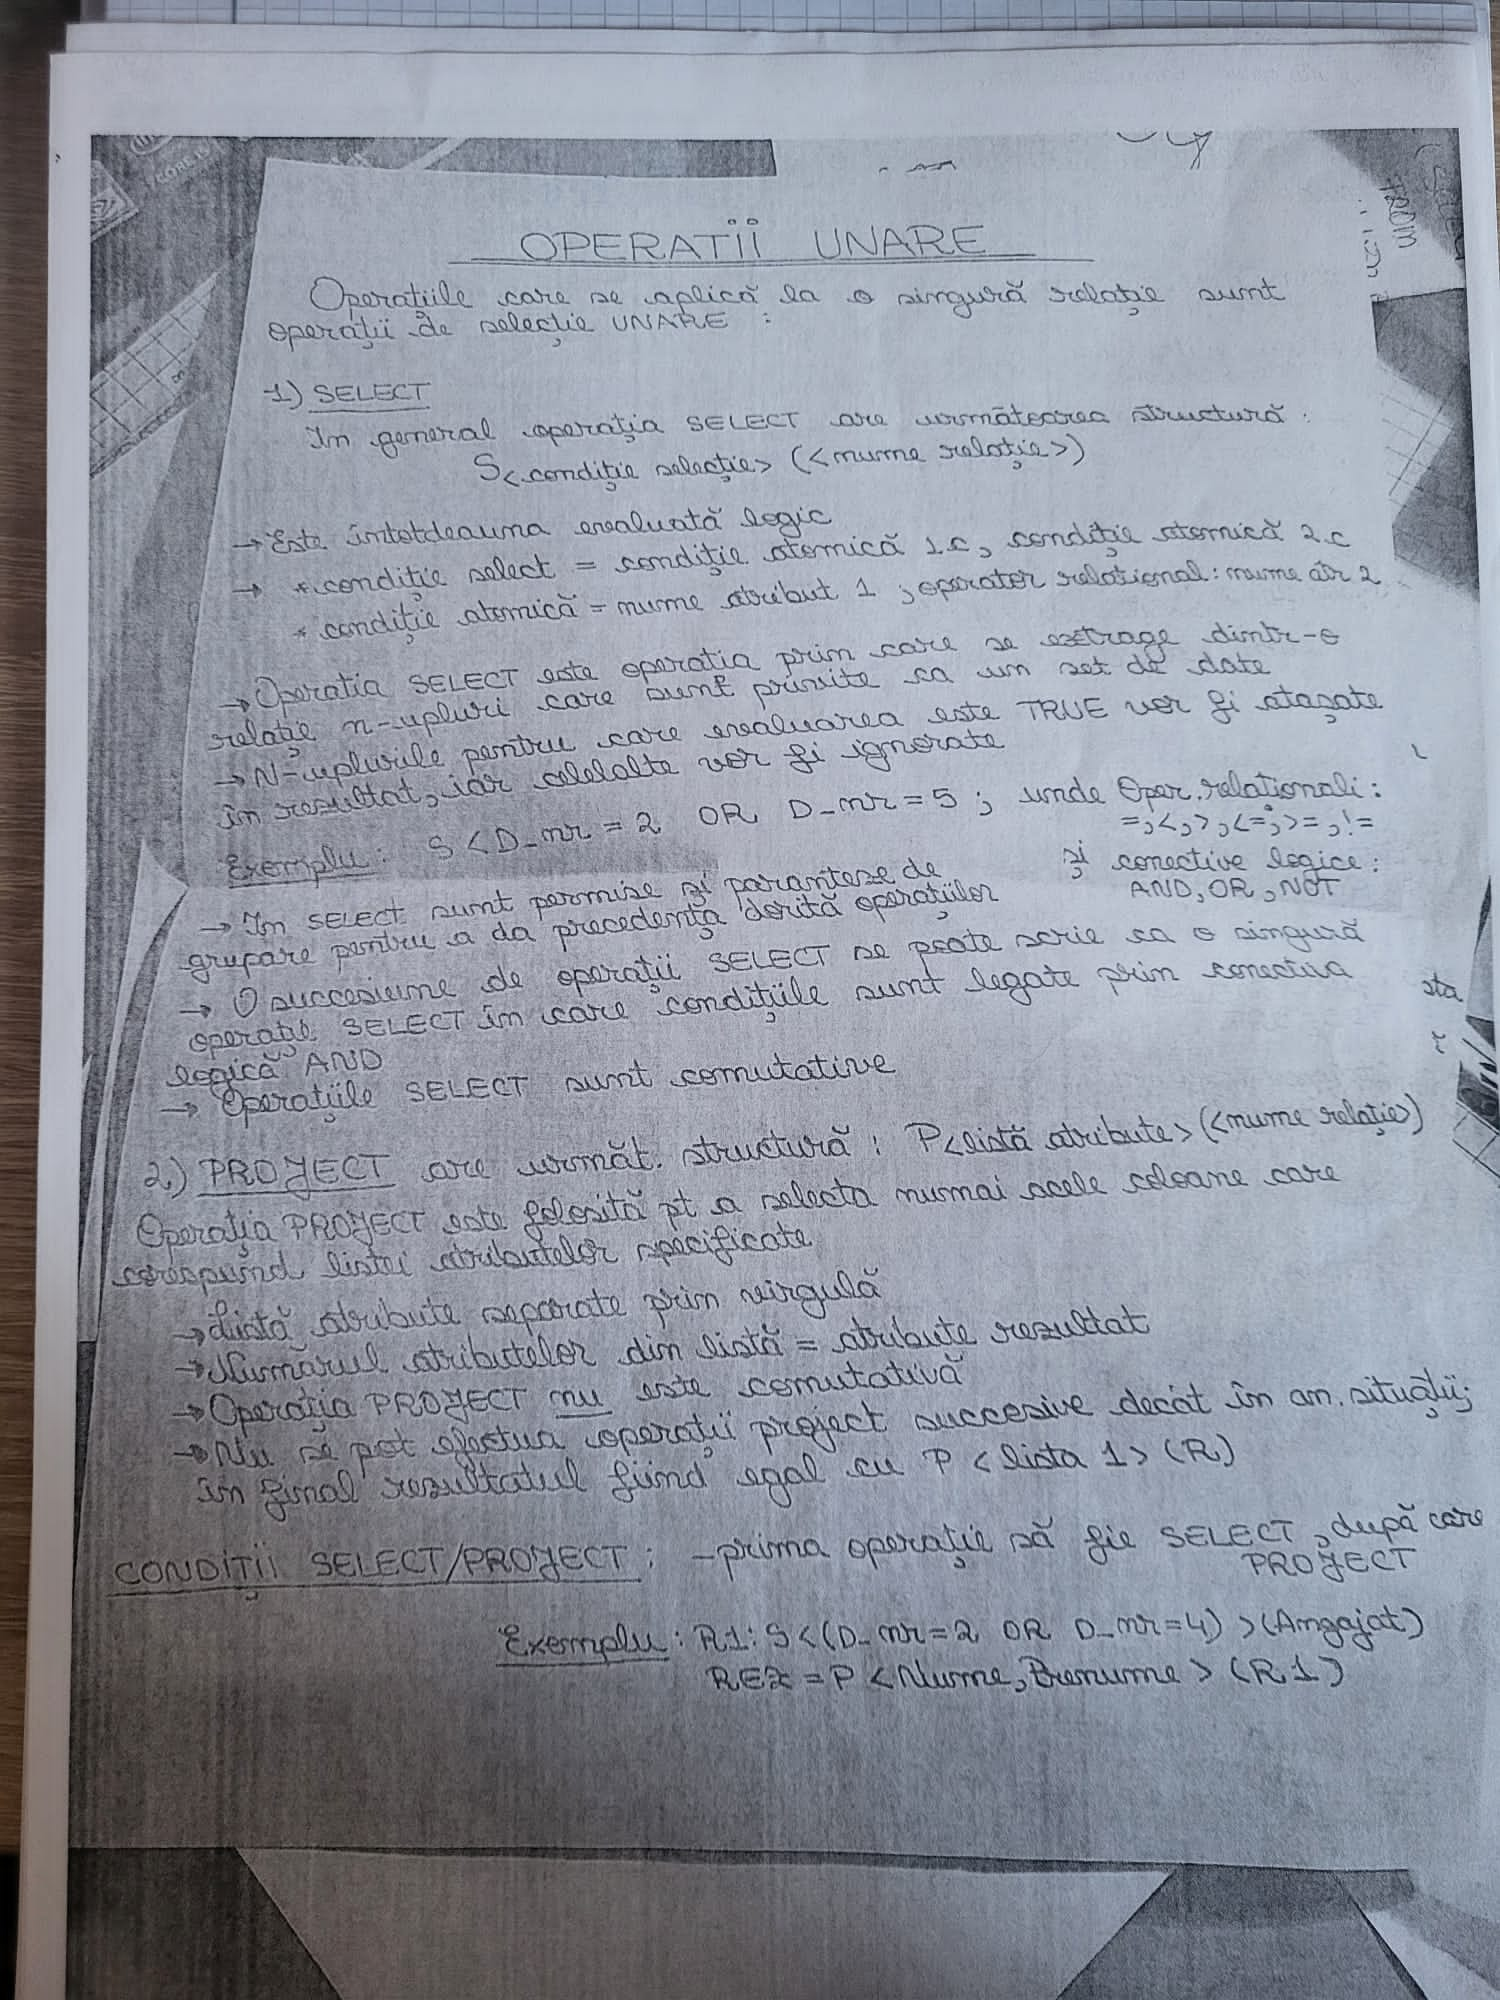 OPERATII UNARE
Operațiile care se aplică la o singură relație sunt
operații de selecție UNARE :
1) SELECT
In general operația SELECT are următoarea structură :
S<condiție selecție> (<nume relație>)
→ Este întotdeauna evaluată logic
→ * condiție select = condiție atomică 1.c, condiție atomică 2.c
* condiție atomică = nume atribut 1, operator relational: nume atr 2
→ Operatia SELECT este operatia prin care se extrage dintr-o
relație n-upluri care sunt privite ca un set de date
→ N-uplurile pentru care evaluarea este TRUE vor fi atașate
în rezultat, iar celelalte vor fi ignorate
Exemplu: S < D_nr = 2 OR D_nr = 5 ; unde Oper. relaționali :
=,<,>,<=,>=,!=
și conective logice :
AND, OR, NOT
→ In SELECT sunt permise și paranteze de
grupare pentru a da precedența dorită operațiilor
→ O succesiune de operații SELECT se poate scrie ca o singură
operație SELECT în care condițiile sunt legate prin conectiva
logică AND
→ Operațiile SELECT sunt comutative
2) PROJECT are următ. structură : P<listă atribute> (<nume relație>)
Operația PROJECT este folosită pt a selecta numai acele coloane care
corespund listei atributelor specificate
→ Listă atribute separate prin virgulă
→ Numărul atributelor din listă = atribute rezultat
→ Operația PROJECT nu este comutativă
→ Nu se pot efectua operații project succesive decât în an. situații;
în final rezultatul fiind egal cu P < lista 1 > (R)
CONDIȚII SELECT/PROJECT : - prima operație să fie SELECT, după care
PROJECT
Exemplu : R1: S < (D_nr = 2 OR D_nr = 4) > (Angajat)
REZ = P < Nume, Prenume > (R1)